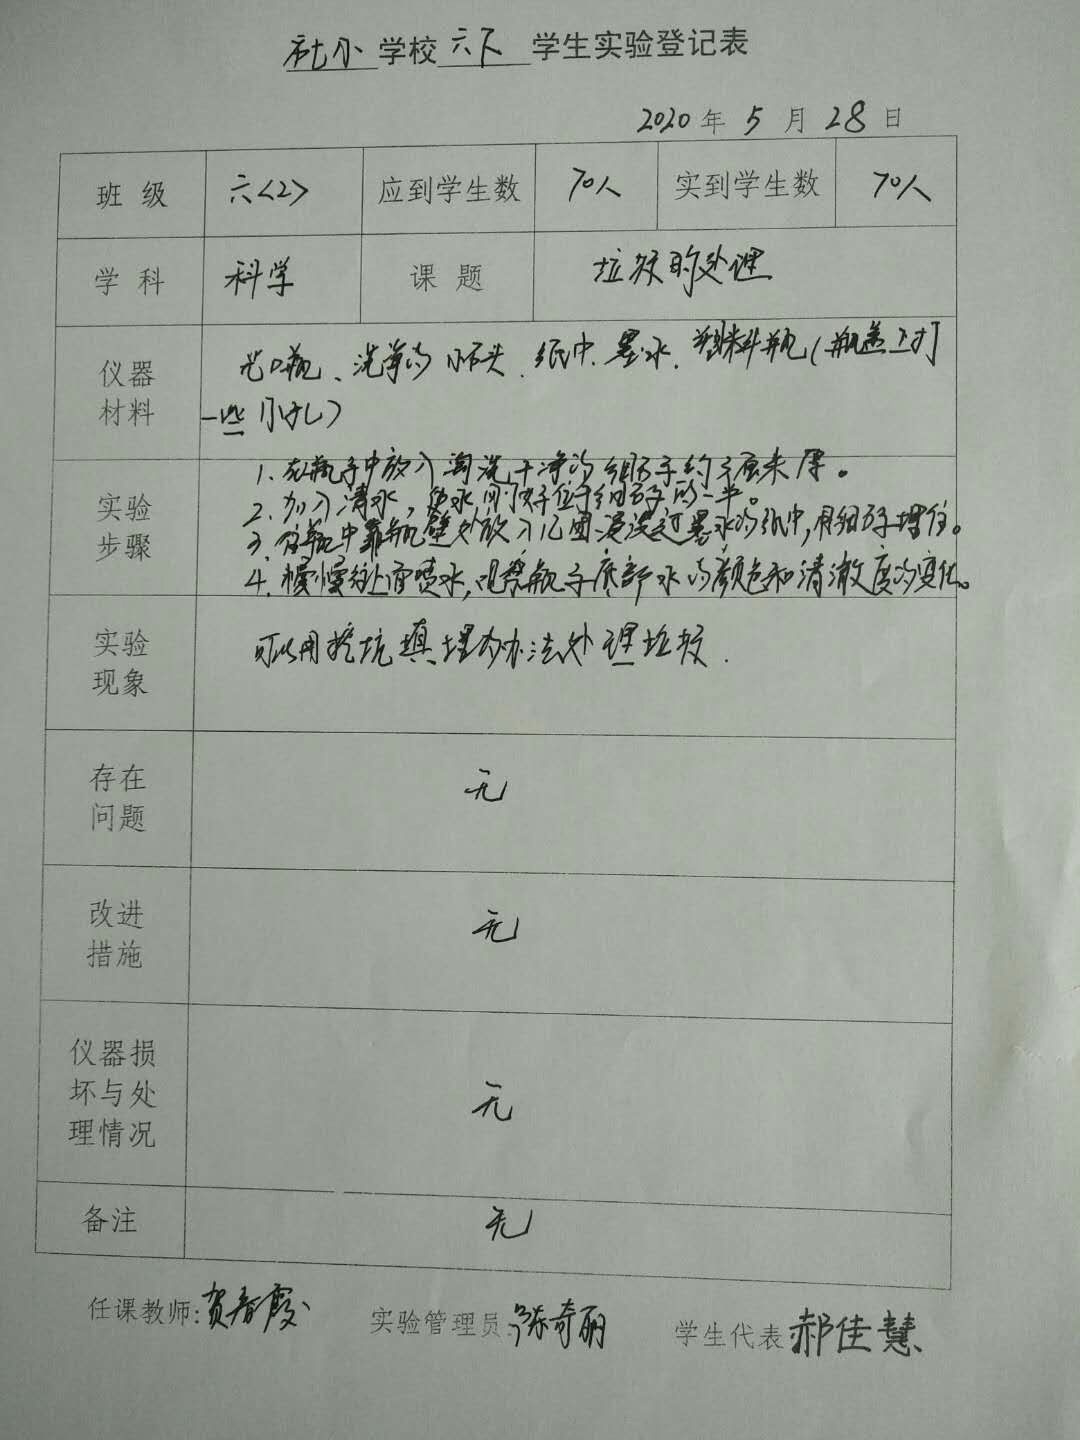 社小学校六下学生实验登记表
2020年5月28日
班级 六<2> 应到学生数 70人 实到学生数 70人
学科 科学 课题 垃圾的处理
仪器材料 广口瓶、洗净的小石头、纸巾、墨水、塑料瓶(瓶盖上打
一些小孔)
实验步骤 1.在瓶子中放入淘洗干净的细石子约 厘米厚。
2.加入清水,使水面 好位于细石子的一半。
3.在瓶中靠瓶壁处放入几团浸过墨水的纸巾,用细石子埋住。
4.慢慢往上面喷水,观察瓶子底部水的颜色和清澈度的变化。
实验现象 可以用挖坑填埋的办法处理垃圾.
存在问题 无
改进措施 无
仪器损坏与处理情况 无
备注 无
任课教师:贺春霞 实验管理员:陈奇丽 学生代表 郝佳慧